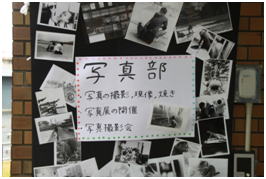 写真部
写真の撮影,現像,焼き
写真展の開催
写真撮影会